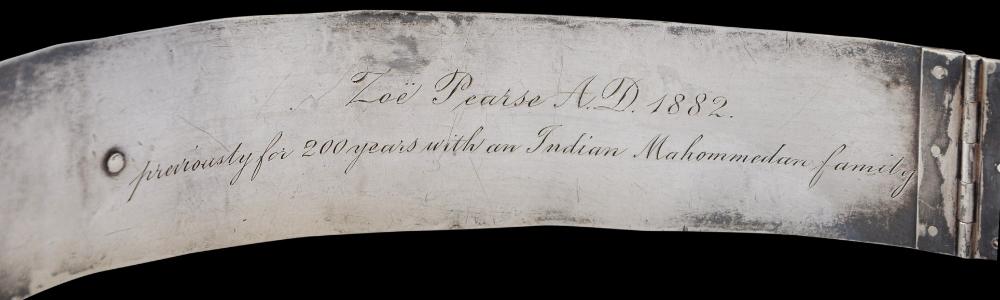 Zoë Pearse A.D. 1882.
previously for 200 years with an Indian Mahommedan family